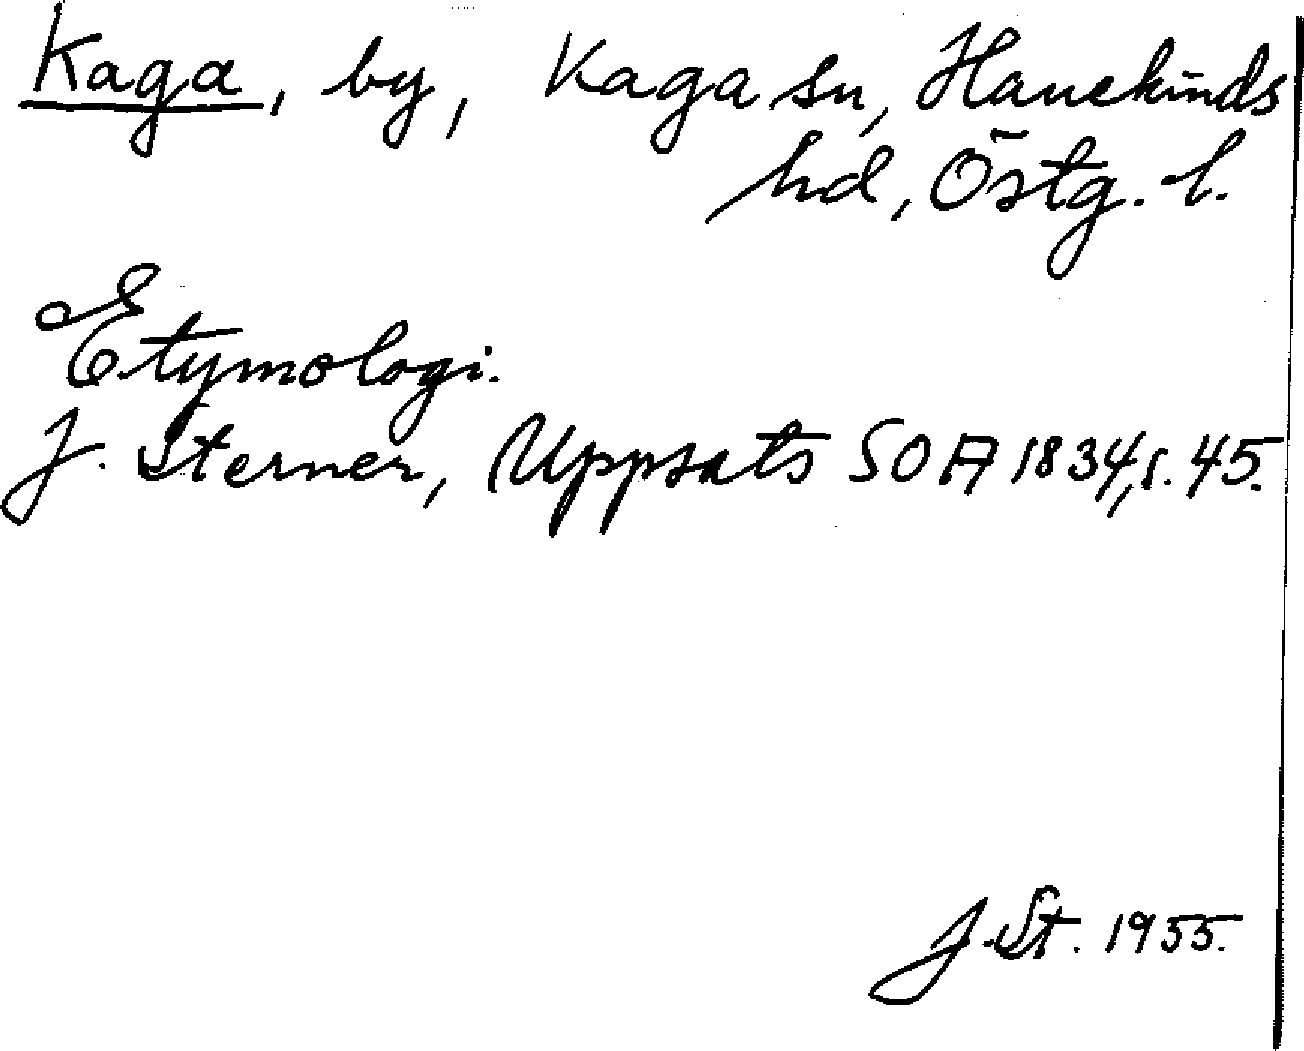 Kaga, by, Kaga sn, Hanekinds
hd, Östg. l.
Etymologi.
J. Sterner, Uppsats SOA 1834, s. 45.
J. St. 1955.